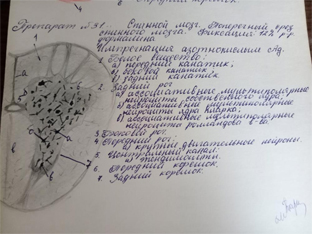 Препарат №31. Спинной мозг. Поперечный срез
спинного мозга. Фиксация 12% р-р
формалина.
Импрегнация азотнокислым Ag.
1. Белое вещество:
а) передний канатик,
б) боковой канатик,
в) задний канатик
2. Задний рог
а) ассоциативные мультиполярные
нейроциты собственного ядра
б) ассоциативные
нейроциты ядра Кларка
в) ассоциативные мультиполярные
нейроциты роландова в-ва.
3. Боковой рог.
4. Передний рог.
а) крупные двигательные нейроны.
5. Центральный канал.
а) эпендимоциты.
6. Передний корешок.
7. Задний корешок.